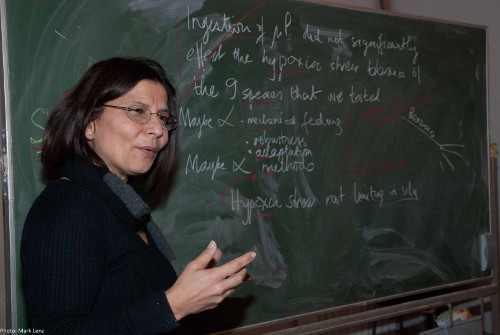 Ingestion of μP did not significantly
effect the hypoxia stress tolerance of
the 9 species that we tested
Maybe ∝ - mechanism feeding
• robustness
• adaptation
Maybe ∝ methods
Hypoxia stress not limiting in situ
Photo: Mark Lenz